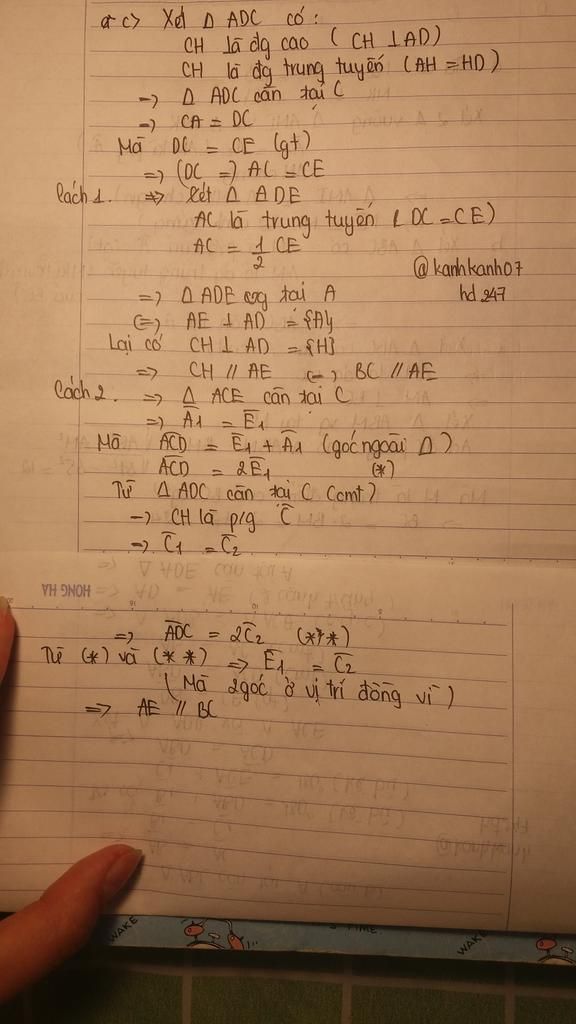 c> Xét Δ ADC có:
CH là đg cao ( CH ⊥ AD)
CH là đg trung tuyến (AH = HD)
=> Δ ADC cân tại C
=> CA = DC
Mà DC = CE (gt)
=> (DC =) AC = CE
Cách 1. => Xét Δ ADE
AC là trung tuyến ( DC = CE)
AC = 1/2 CE
@kanhkanh07
hd 247
=> Δ ADE vg tại A
(=) AE ⊥ AD = {A}
Lại có CH ⊥ AD = {H}
=> CH // AE (=) BC // AE
Cách 2. => Δ ACE cân tại C
=> A1 = E1
Mà ACD = E1 + A1 (góc ngoài Δ)
ACD = 2E1 (*)
Từ Δ ADC cân tại C (cmt)
=> CH là p/g C
=> C1 = C2
HONG HA
=> ADC = 2C2 (**)
Từ (*) và (**) => E1 = C2
( Mà 2 góc ở vị trí đồng vị )
=> AE // BC
WAKE
TIME.
WAKE